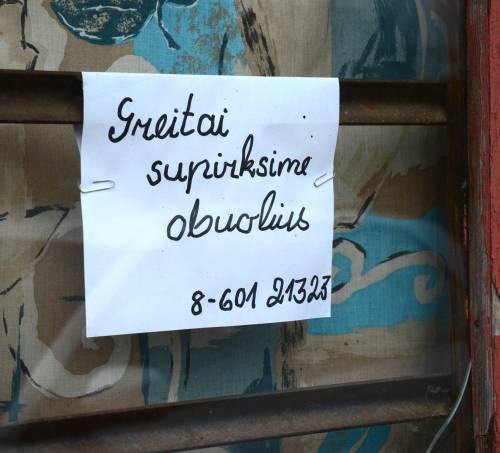 Greitai
supirksime
obuolius
8-601 21323